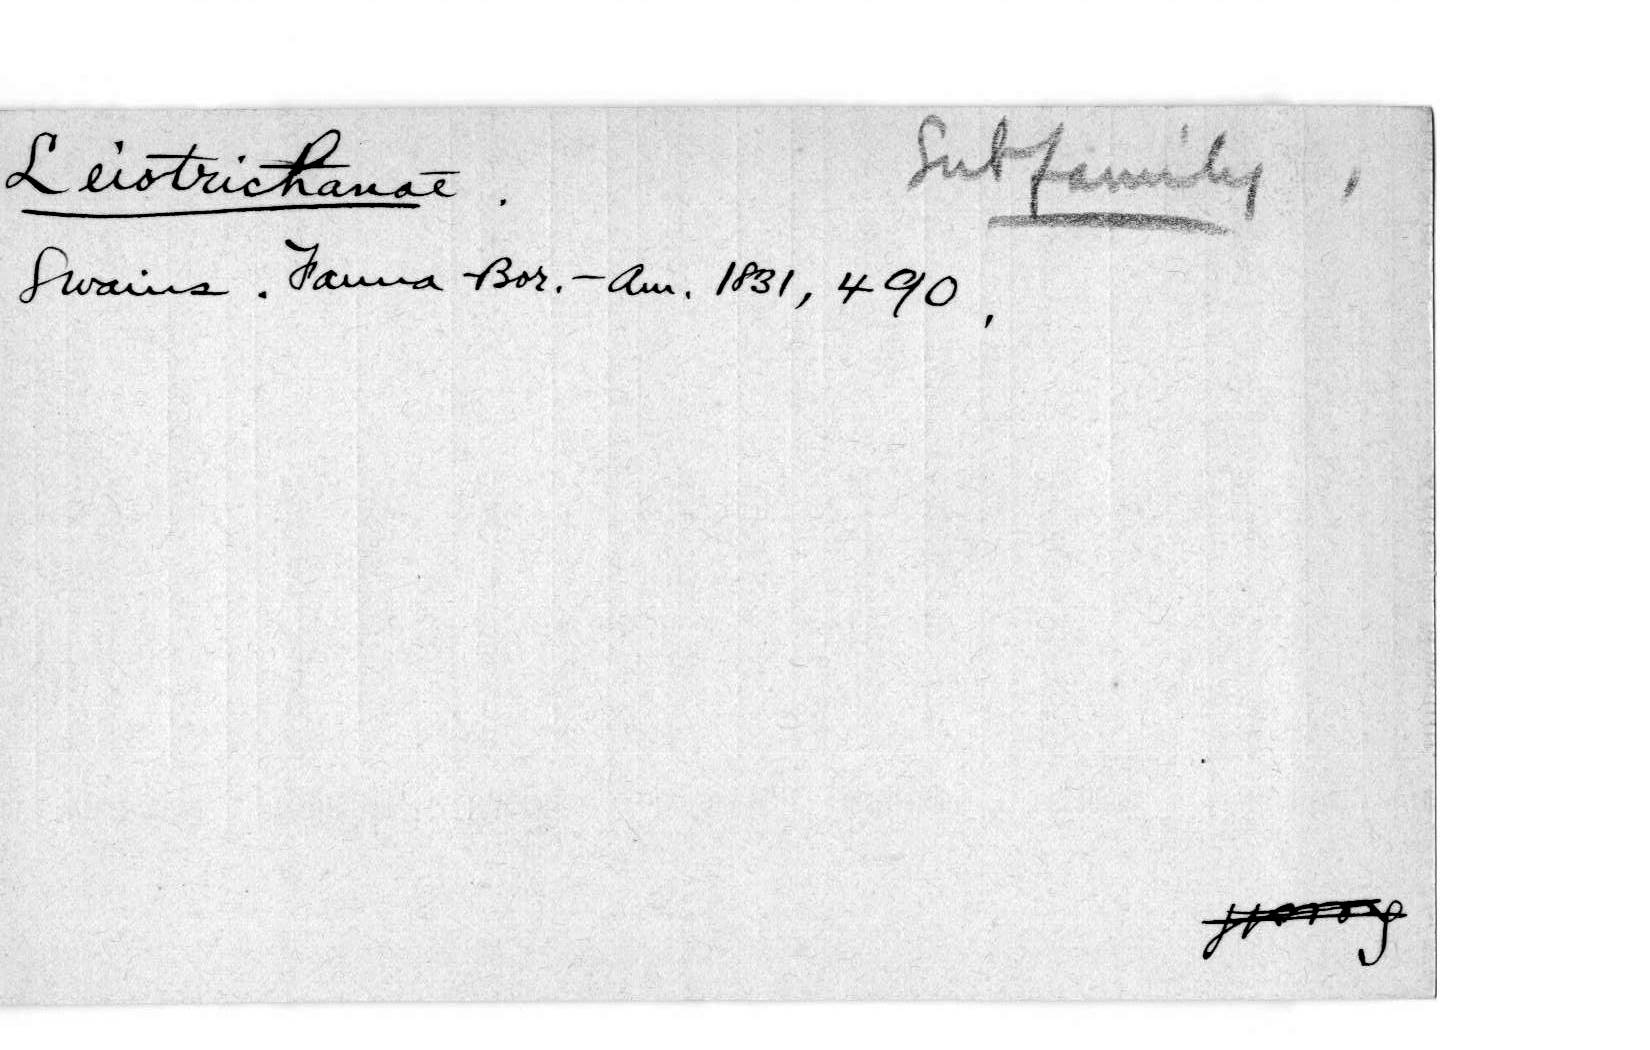 Leiotrichanae. Subfamily,
Swains. Fauna-Bor.-Am. 1831, 490,